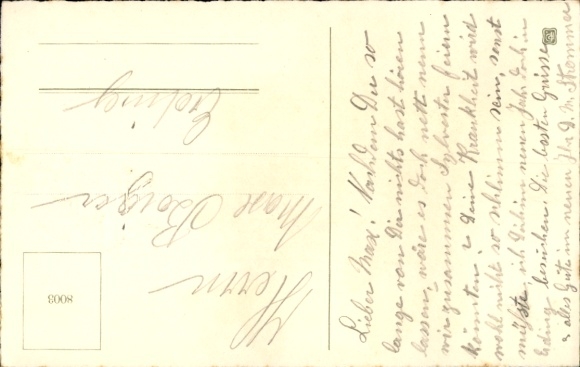 Lieber Max! Nachdem Du so
lange von Dir nichts hast hören
lassen, wäre es doch nett wenn
wir zusammen Sylvester feiern
könnten. Deine Krankheit wird
wohl nicht so schlimm sein, sonst
müßte ich dich im neuen Jahr doch in
Erding besuchen. Die besten Grüsse
u. alles Gute im neuen
Herrn
Max Berger
Erding
8003